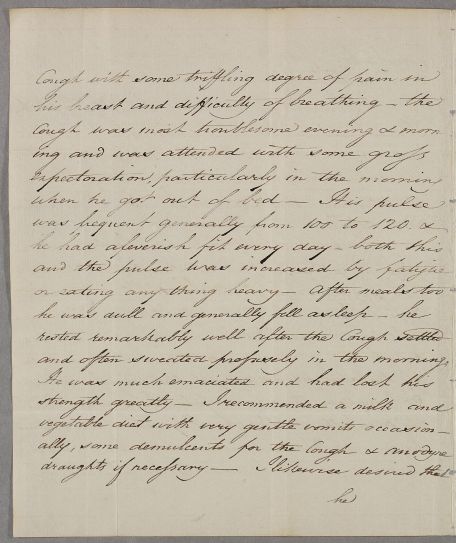 Cough with some triffling degree of pain in
his breast and difficulty of breathing – the
Cough was most troublesome evening & morn
ing and was attended with some gross
expectoration, particularly in the morning
when he got out of bed – His pulse
was frequent generally from 100 to 120. &
he had a feverish fit every day – both this
and the pulse was increased by fatigue
or eating any thing heavy – After meals too
he was dull and generally fell asleep – he
rested remarkably well after the Cough settled
and often sweated profusely in the morning,
He was much emaciated and had lost his
strength greatly – I recommended a milk and
vegetable diet with very gentle vomits occasion-
ally, some demulcents for the Cough & anodyne
draughts if necessary – I likewise desired that
he